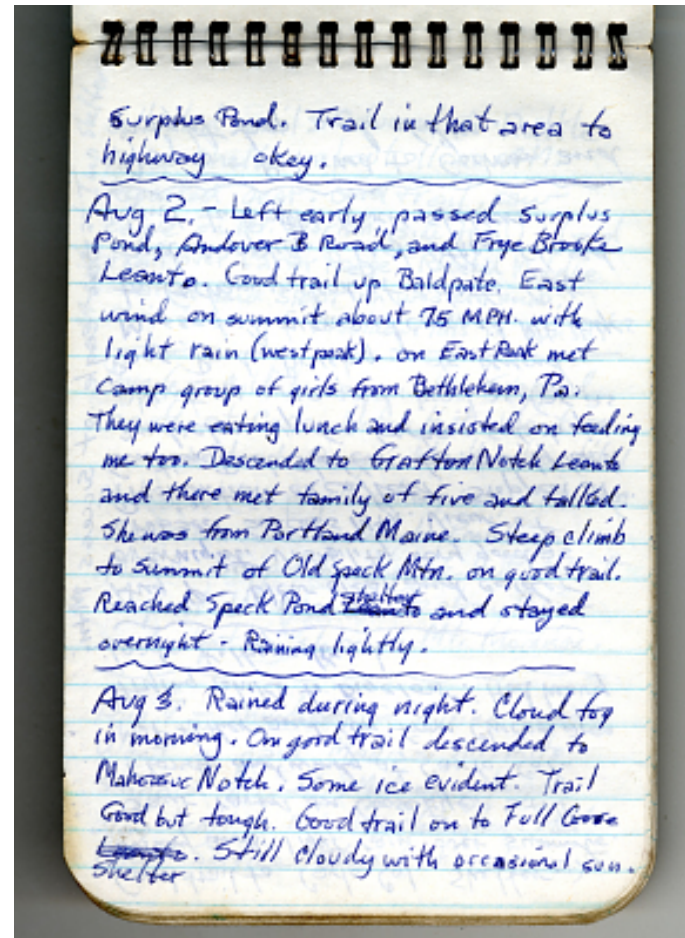 Surplus Pond. Trail in that area to
highway okey.
Aug 2, - Left early, passed Surplus
Pond, Andover B Road, and Frye Brooke
Leanto. Good trail up Baldpate. East
wind on summit about 75 MPH. with
light rain (westpeak). on East Peak met
Camp group of girls from Bethlehem, Pa.
They were eating lunch and insisted on feeding
me too. Descended to Grafton Notch Leanto
and there met family of five and talked.
She was from Portland Maine. Steep climb
to summit of Old Speck Mtn. on good trail.
Reached Speck Pond shelter and stayed
overnight - Raining lightly.
Aug 3. Rained during night. Cloud top
in morning. On good trail descended to
Mahoosuc Notch. Some ice evident. Trail
Good but tough. Good trail on to Full Goose
Leanto. Still cloudy with occasional sun.
Shelter